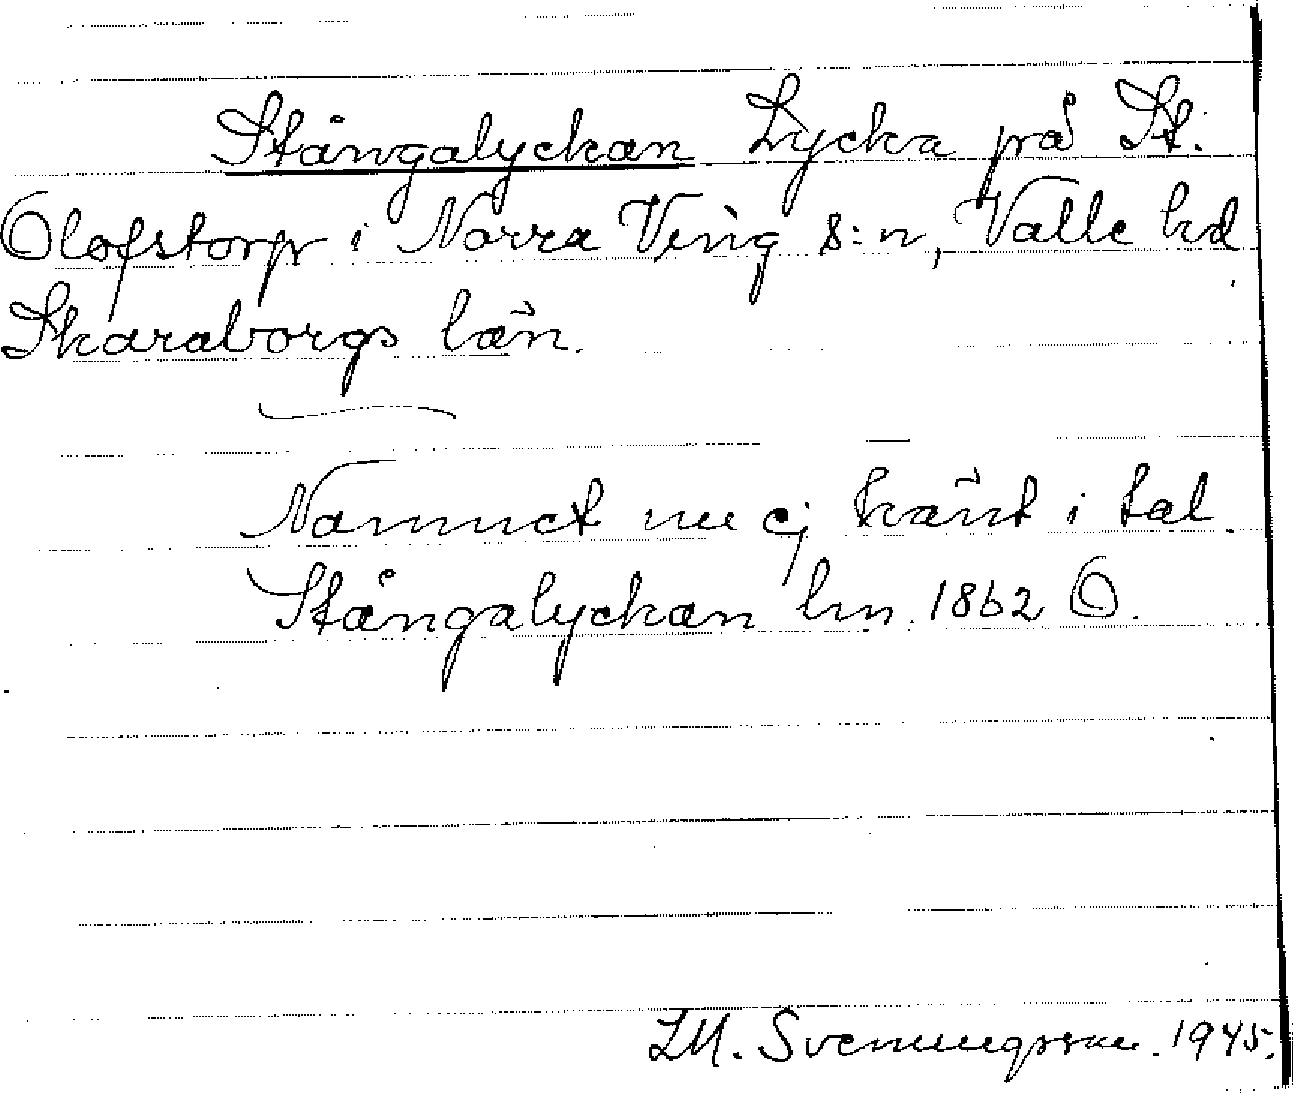 Stångalyckan Lycka på St.
Olofstorp i Norra Ving s:n, Valle hd
Skaraborgs län.
Namnet nu ej känt i tal.
Stångalyckan hm. 1862 Ö.
L.M. Svenungsson. 1945.